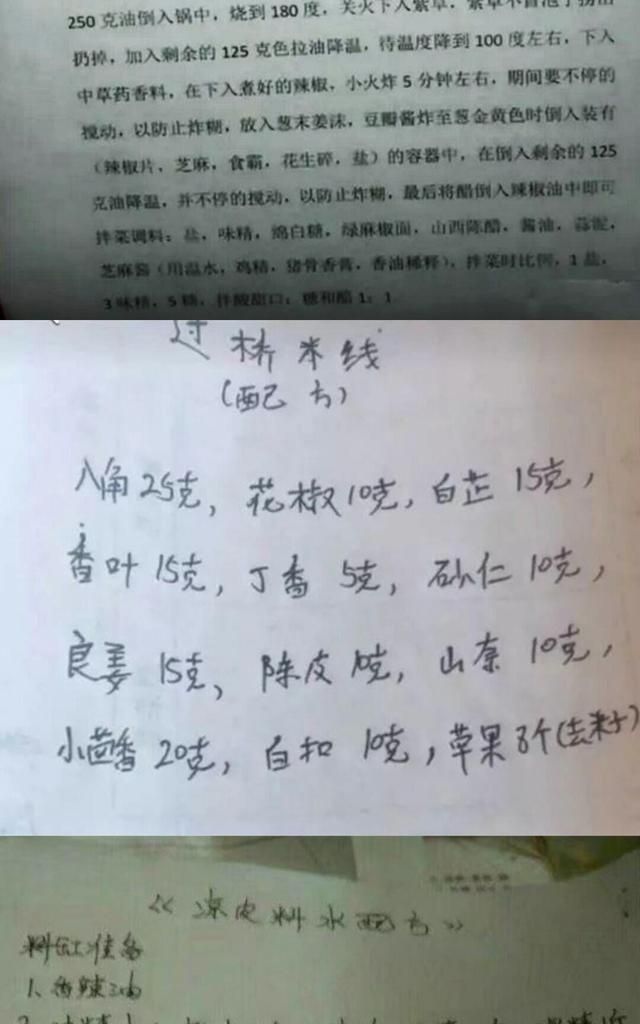 250 克油倒入锅中，烧到 180 度，关火下入紫草，紫草不冒泡了捞出
扔掉，加入剩余的 125 克色拉油降温，待温度降到 100 度左右，下入
中草药香料，在下入煮好的辣椒，小火炸 5 分钟左右，期间要不停的
搅动，以防止炸糊，放入葱末姜沫，豆瓣酱炸至葱金黄色时倒入装有
（辣椒片，芝麻，食霸，花生碎，盐）的容器中，在倒入剩余的 125
克油降温，并不停的搅动，以防止炸糊，最后将醋倒入辣椒油中即可
拌菜调料：盐，味精，绵白糖，绿麻椒面，山西陈醋，酱油，蒜泥，
芝麻酱（用温水，鸡精，猪骨香膏，香油稀释），拌菜时比例，1 盐，
3 味精，5 糖，拌酸甜口：糖和醋 1：1
过桥米线
（配方）
八角25克，花椒10克，白芷 15克，
香叶 15克，丁香 5克，砂仁 10克，
良姜 15克，陈皮 10克，山奈 10克，
小茴香 20克，白扣 10克，草果8个(去籽)
《凉皮料水配方》
料缸准备
1、香辣油